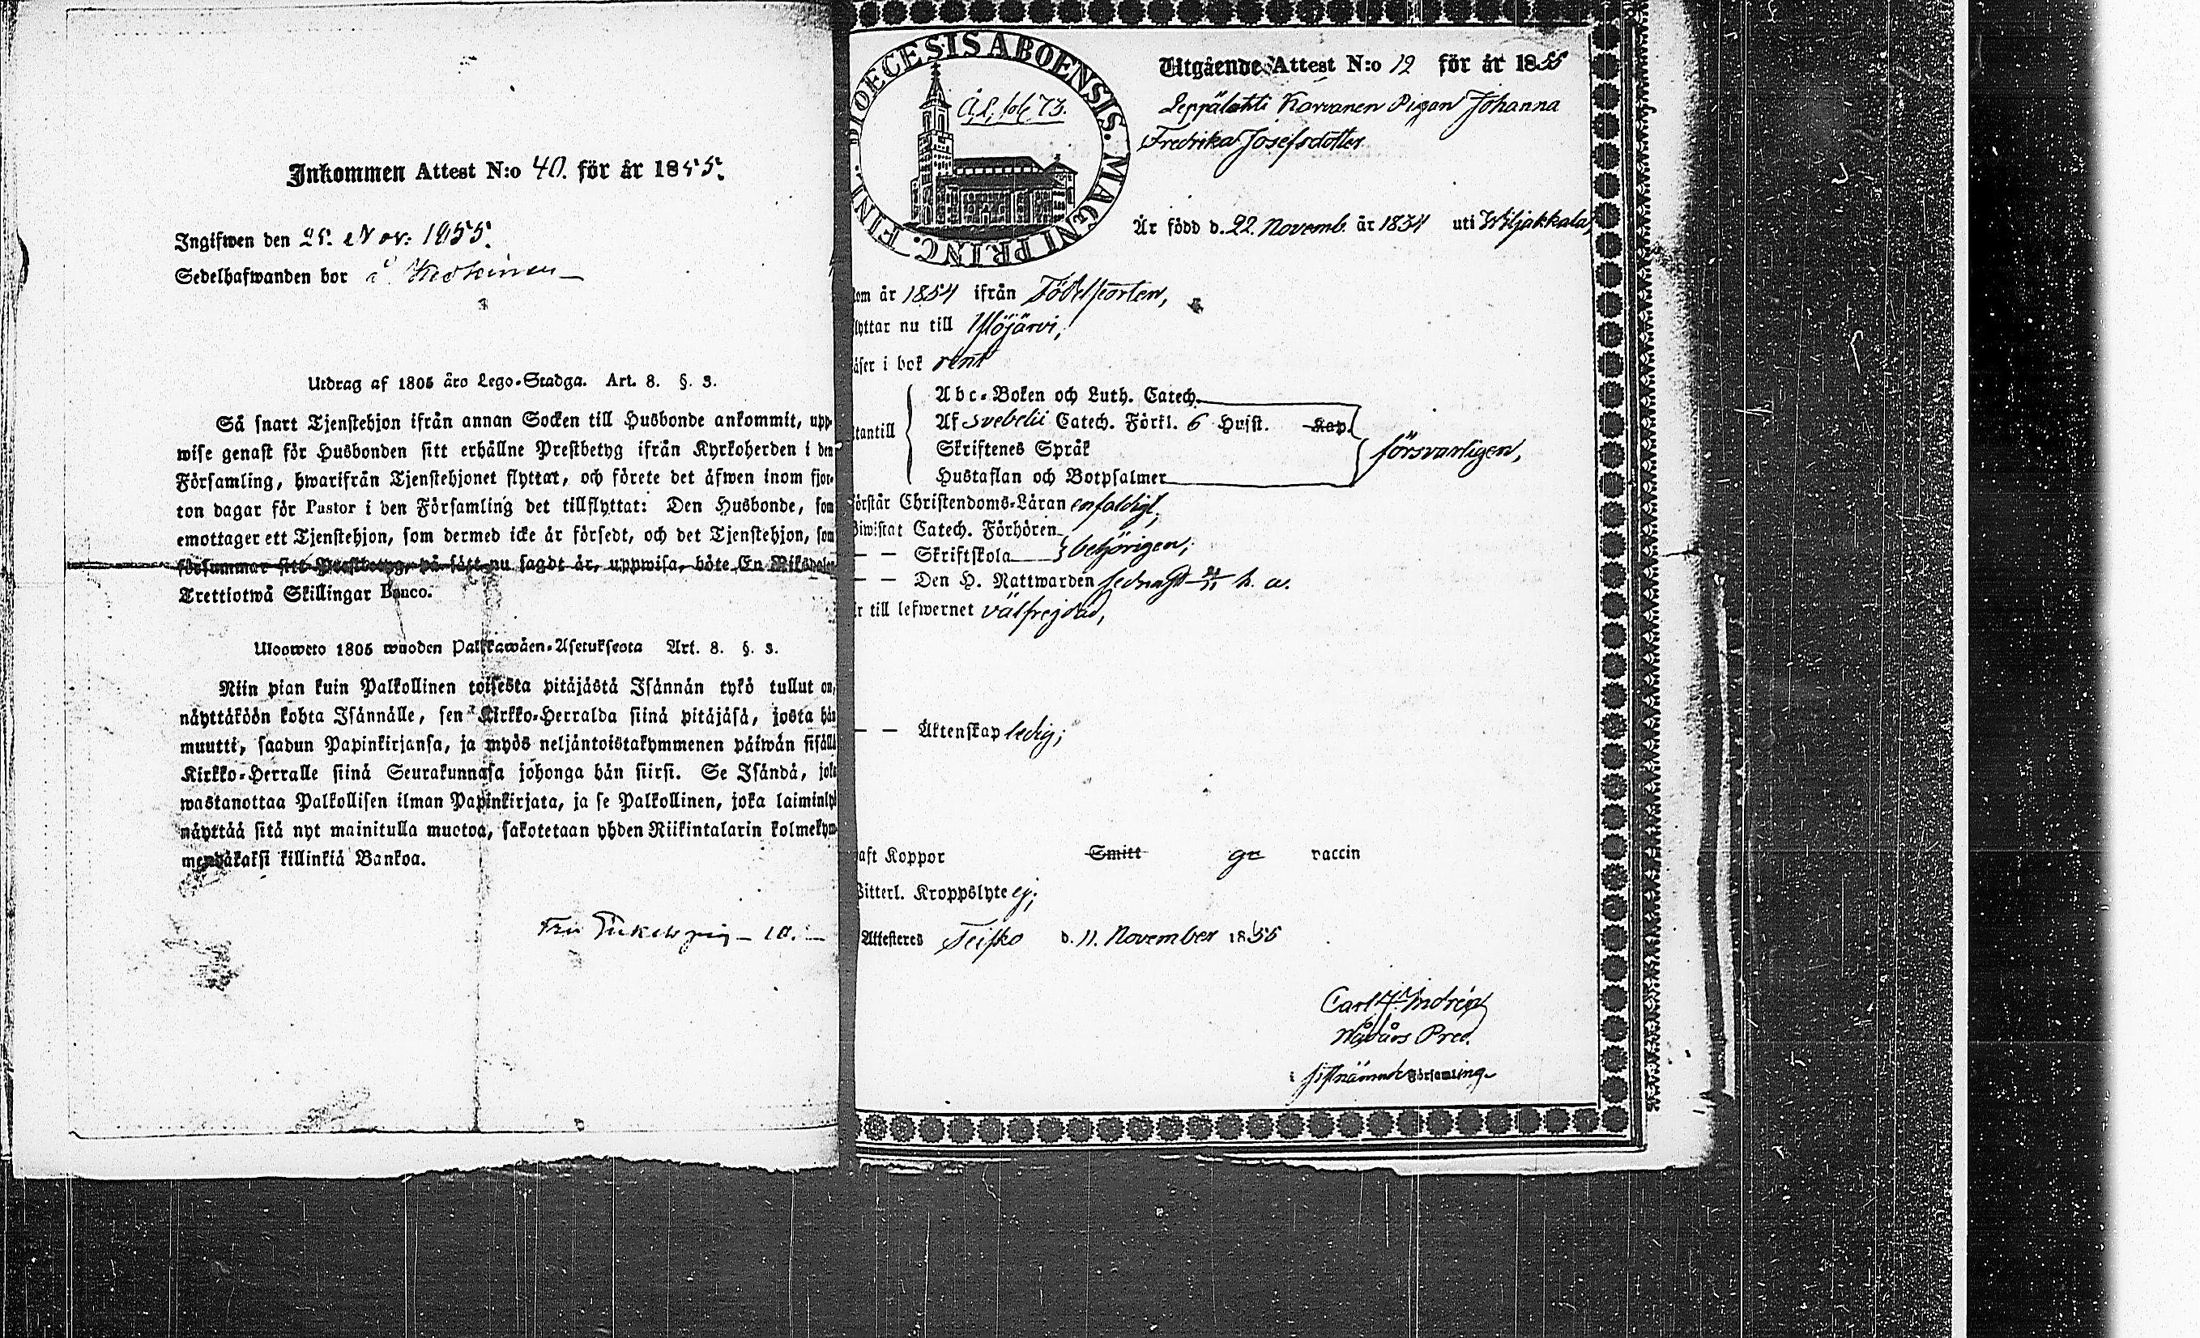 Inkommen Attest N:o 40. för år 1855.
Ingifwen den 25. Nov: 1855.
Sedelhafwanden bor å
Utdrag af 1805 års Lego-Stadga. Art. 8. §. 3.
Så snart Tjenstehjon ifrån annan Socken till Husbonde ankommit, upp-
wise genast för Husbonden sitt erhållne Prestbetyg ifrån Kyrkoherden i den
Församling, hwarifrån Tjenstehjonet flyttat, och förete det äfwen inom fjor-
ton dagar för Pastor i den Församling det tillflyttat: Den Husbonde, som
emottager ett Tjenstehjon, som dermed icke är försedt, och det Tjenstehjon, som
försummar sitt Prestbetyg, på sätt nu sagdt är, uppwisa, böte En Riksdaler
Trettiotwå Skillingar Banco.
Ulosweto 1805 wuoden Palkkawäen-Asetuksesta Art. 8. §. 3.
Niin pian kuin Palkollinen toisesta pitäjästä Isännän tykö tullut on,
näyttäköön kohta Isännälle, sen Kirkko-Herralda siinä pitäjäsä, josta hän
muutti, saadun Papinkirjansa, ja myös neljäntoistakymmenen päiwän sisällä
Kirkko-Herralle siinä Seurakunnasa johonga hän siirsi. Se Isändä, joka
wastanottaa Palkollisen ilman Papinkirjata, ja se Palkollinen, joka laiminly
näyttää sitä nyt mainitulla muotoa, sakotetaan yhden Riikintalarin kolmekym-
mendäkaksi killinkiä Bankoa.
10.
DIOECESIS ABOENSIS. MAGNI PRINC. FINL.
Äl, fol 73.
Utgående Attest N:o 12 för år 1855
Leppälahti Karvanen Pigan Johanna
Fredrika Josefsdotter
Är född d. 22 Novemb. år 1834 uti Wiljakkala,
kom år 1854 ifrån Födelseorten,
flyttar nu till Ylöjärvi,
läser i bok rent
utantill
Abc-Boken och Luth. Catech.
Af Svebelii Catech. Förkl. 6 Hufst. Kap.
Skriftenes Språk
Hustaflan och Botpsalmer
försvarligen,
Förstår Christendoms-Läran enfaldigt,
Biwistat Catech. Förhören
— — Skriftskola behörigen;
— — Den H. Nattwarden sednast 4/11 h. a.
är till lefwernet välfrejdad,
— — Äktenskap ledig;
haft Koppor Smitt ge vaccin
Witterl. Kroppslyte ej;
Attesteres Teisko d. 11. November 1855
Carl A. Indrén
Nådårs Pred.
i sistnämnde Församling.